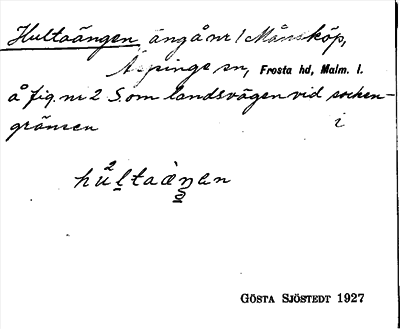 Hultaängen, äng å nr 1 Månsköp,
Äspinge sn, Frosta hd, Malm. l.
å fig. nr 2 S. om landsvägen vid socken-
gränsen i
hultaàŋen
GÖSTA SJÖSTEDT 1927